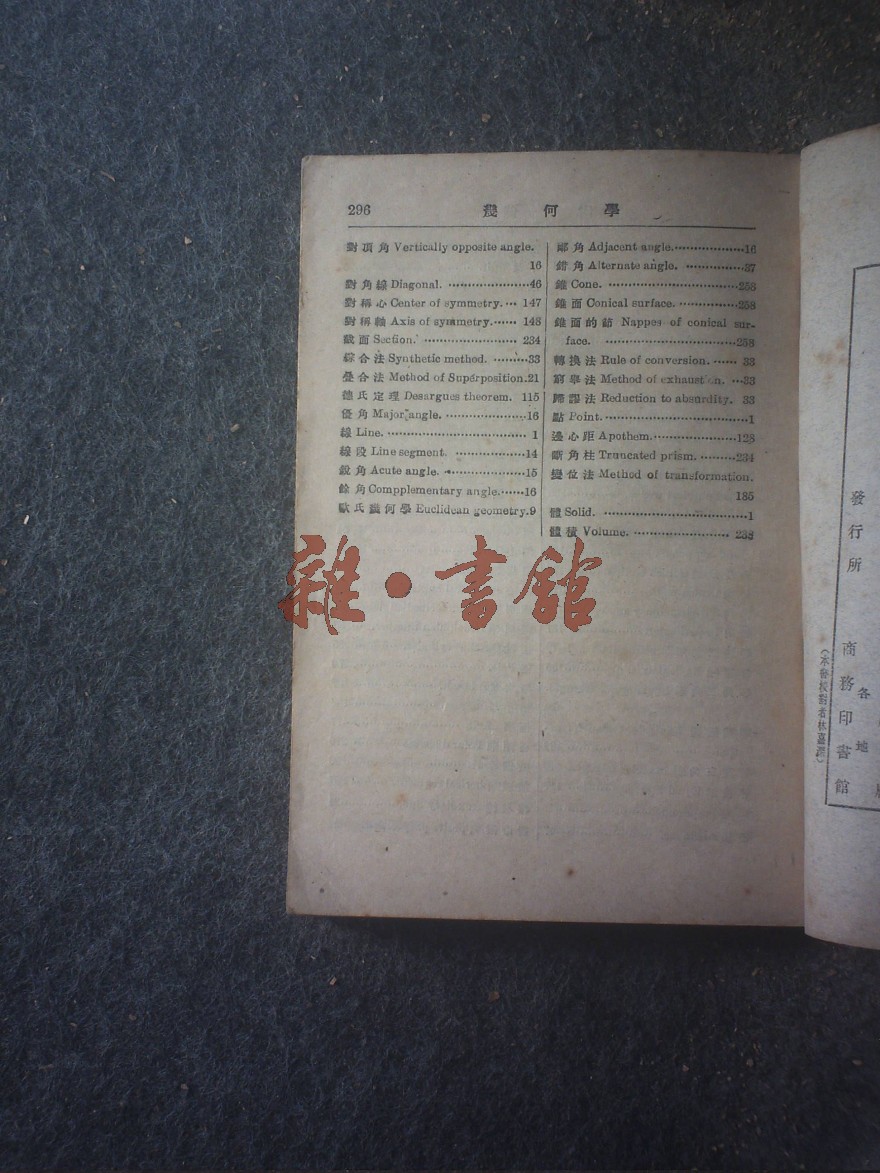 296 幾何學
對頂角 Vertically opposite angle.
16
對角線 Diagonal. ··················46
對稱心 Center of symmetry.··· 147
對稱軸 Axis of symmetry.······ 148
截面 Section. ························ 234
綜合法 Synthetic method. ··········33
疊合法 Method of Superposition.21
德氏定理 Desargues theorem. 115
優角 Major angle. ·····················16
線 Line. ···································· 1
線段 Line segment. ··················14
銳角 Acute angle. ···················15
餘角 Compplementary angle.······16
歐氏幾何學 Euclidean geometry.9
鄰角 Adjacent angle.··················16
錯角 Alternate angle. ···············37
錐 Cone. ·································258
錐面 Conical surface. ···············258
錐面的節 Nappes of conical sur-
face. ··································258
轉換法 Rule of conversion. ······ 33
窮舉法 Method of exhaustion. ···33
歸謬法 Reduction to absurdity. 33
點 Point.·····································1
邊心距 Apothem.·····················128
斷角柱 Truncated prism. ·········234
變位法 Method of transformation.
185
體 Solid. ·····································1
體積 Volume. ························ 238
雜·書館
發行所
商務印書館
各地
(本書校對者林